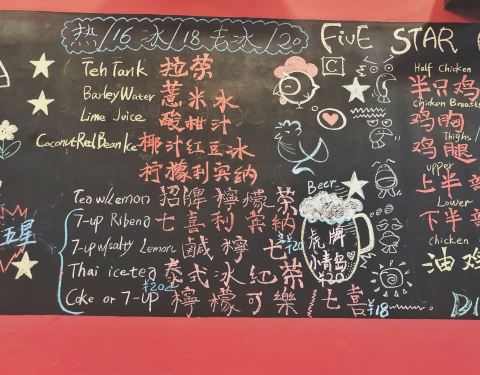 热/16 冰/18 去冰/20
FiVE STAR
Teh Tarik 拉茶
Barley Water 薏米水
Lime Juice 酸柑汁
Coconut Red Bean Ice 椰汁红豆冰
柠檬利宾纳
Tea w/Lemon 招牌檸檬茶
7-up Ribena 七喜利賓納
7-up w/salty Lemon 鹹檸七 ¥20
Thai ice tea 泰式冰紅茶
¥20
Coke or 7-up 檸檬可樂/七喜 ¥18
五星
C
Beer
虎牌
小青岛
¥20
Half Chicken
半只鸡
Chicken Breast
鸡胸
Thighs
鸡腿
upper
上半
Lower
下半
chicken
油鸡